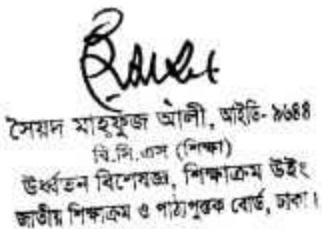 সৈয়দ মাহফুজ আলী, আইডি- ৯৬৪৪
বি.সি.এস (শিক্ষা)
উর্ধ্বতন বিশেষজ্ঞ, শিক্ষাক্রম উইং
জাতীয় শিক্ষাক্রম ও পাঠ্যপুস্তক বোর্ড, ঢাকা।